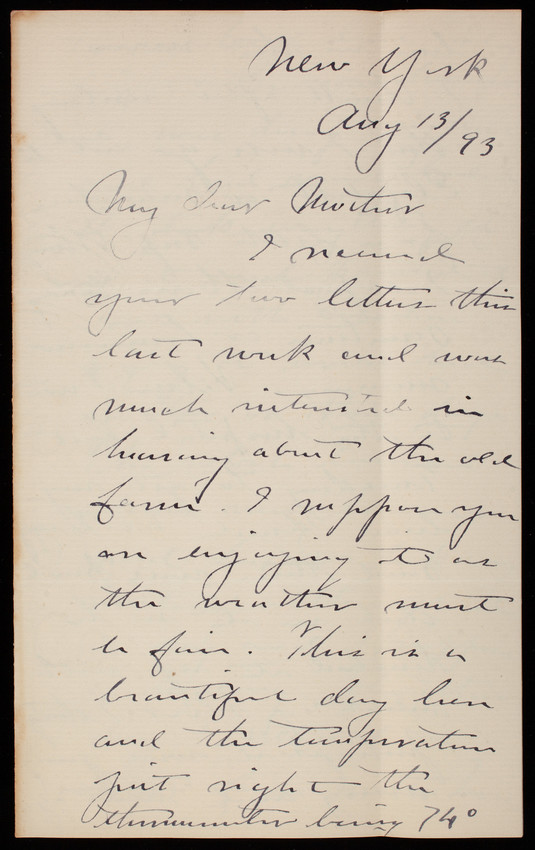 New York
Aug 13/93
My dear Mother
I received
your two letters this
last week and was
much interested in
hearing about the old
farm. I suppose you
are enjoying it as
the weather must
be fair. This is a
beautiful day here
and the temperature
just right the
thermometer being 74°